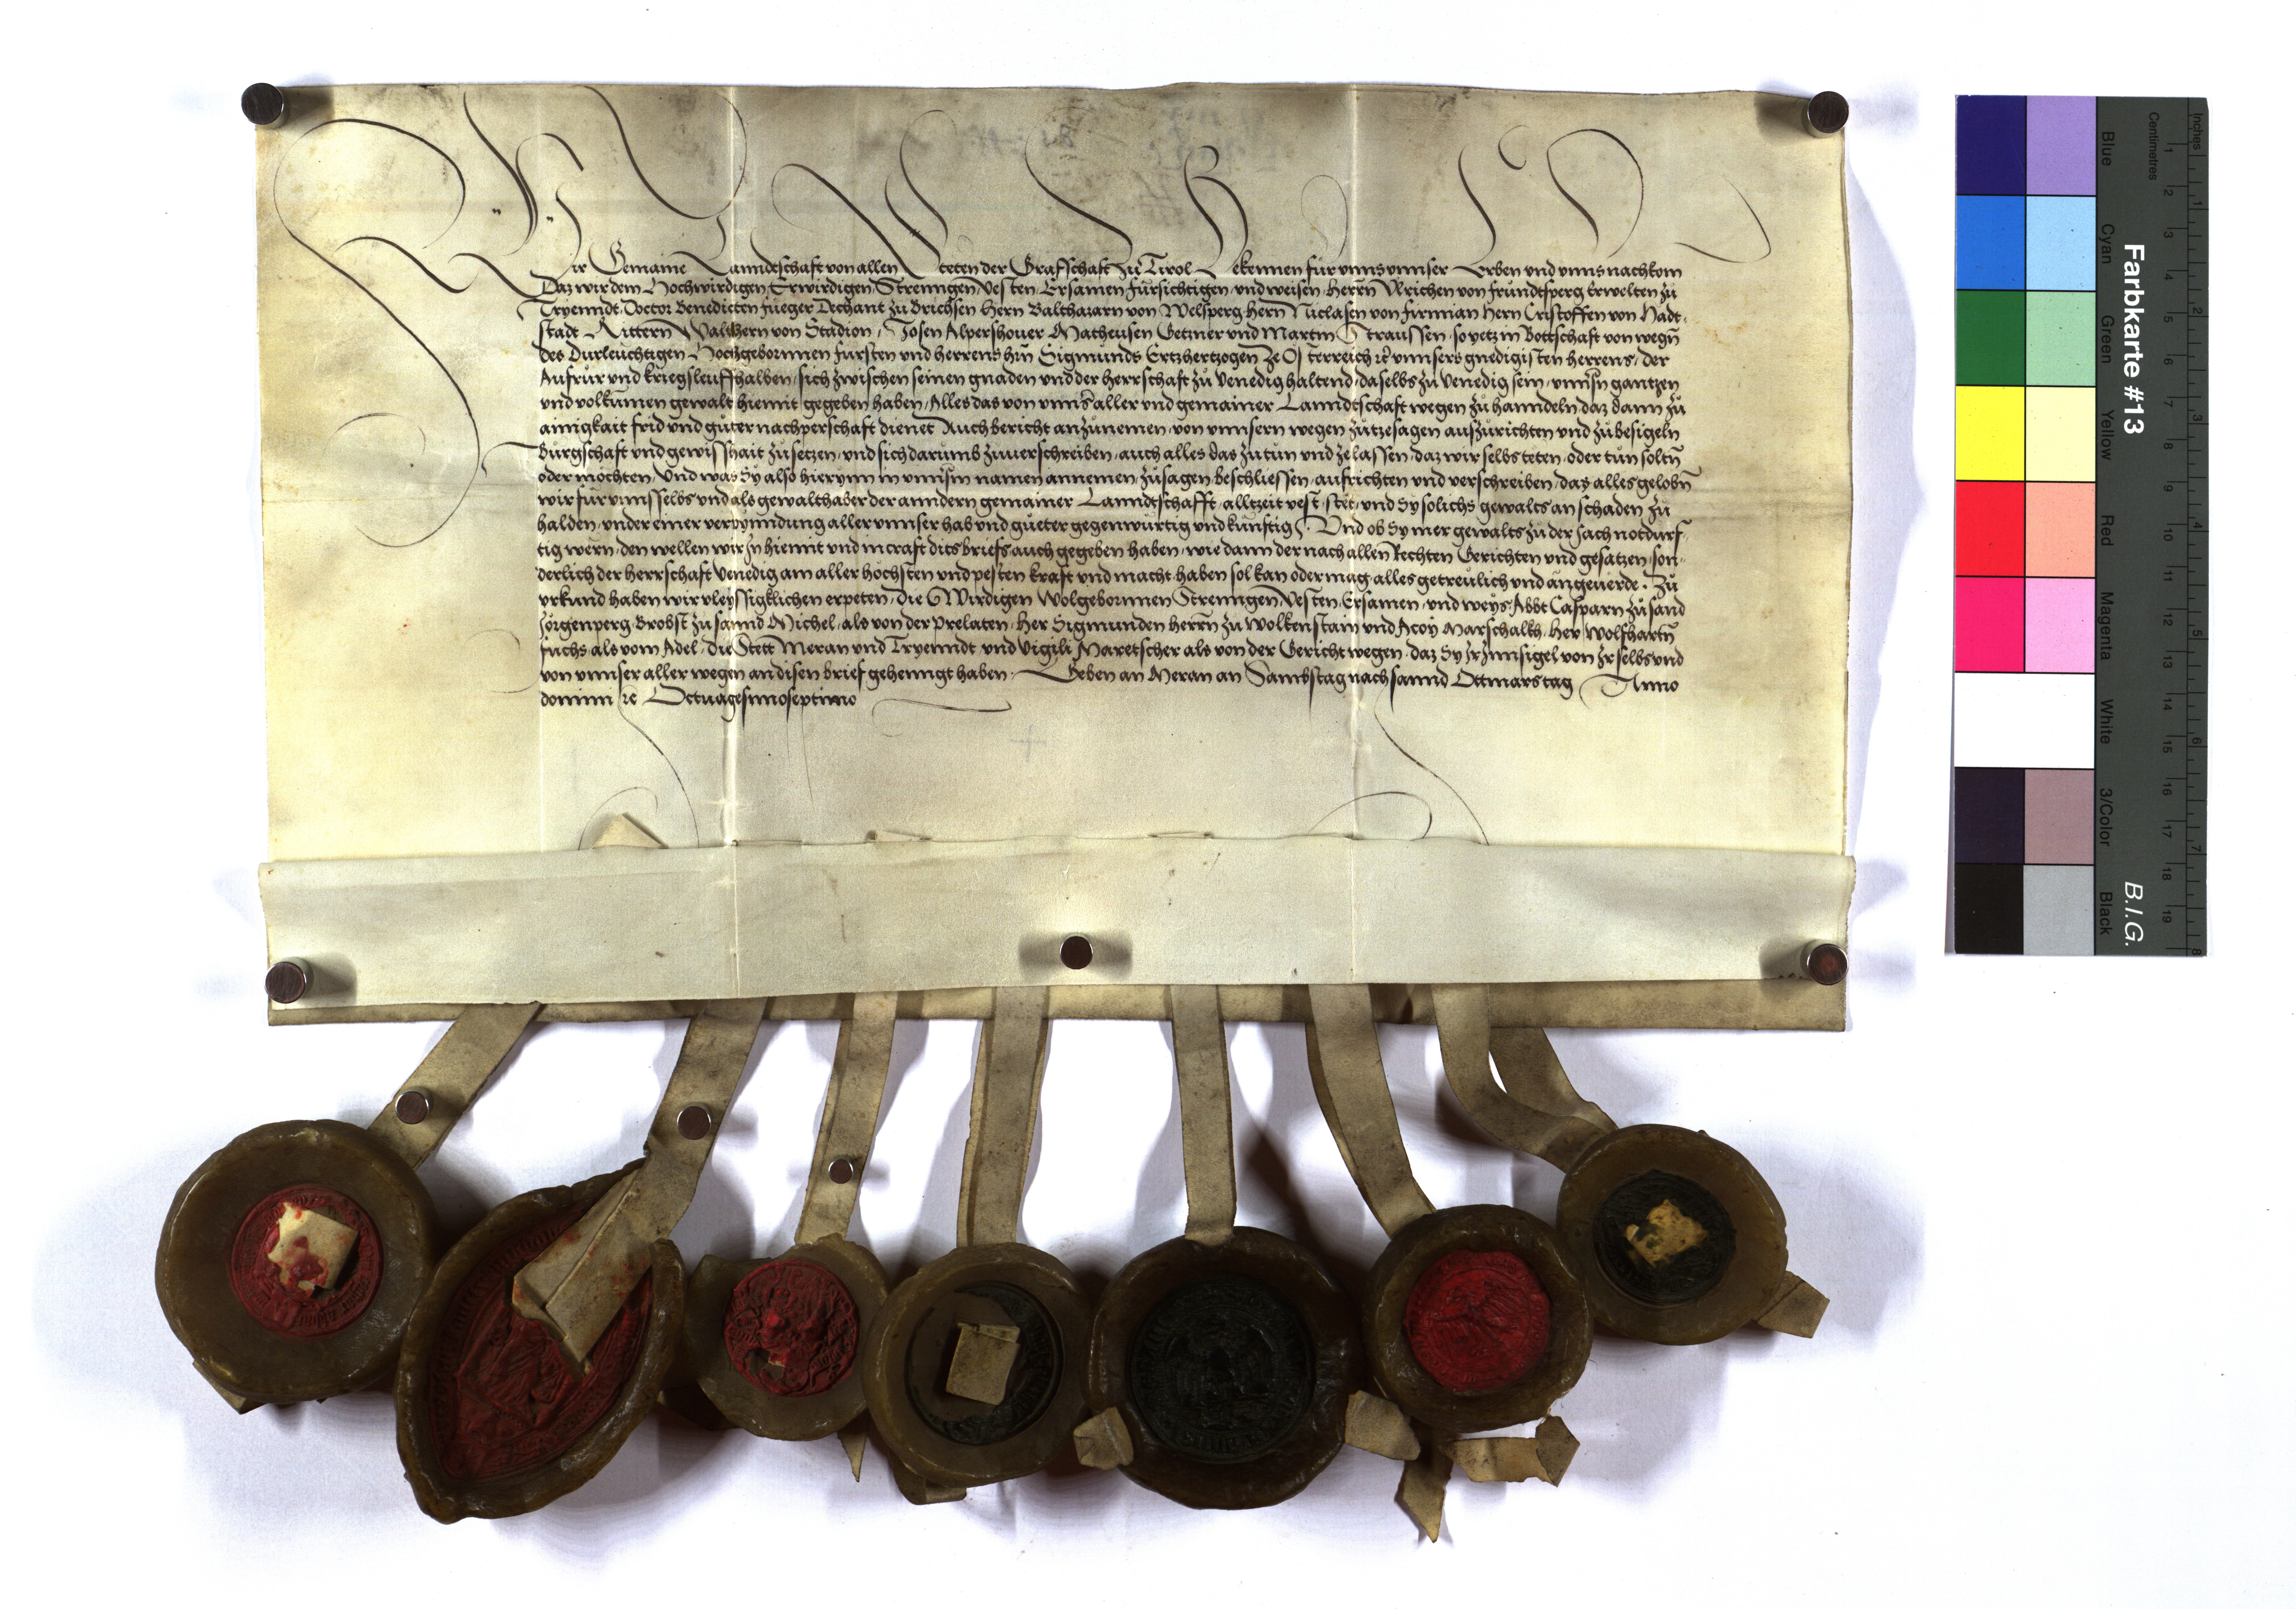 Wir Gemaine Lanndtschaft von allen Steten der Grafschaft zů Tirol Bekennen für vnns vnnser Erben vnd vnns nachkom
Daz wir dem Hochwirdigen Erwirdigen Strenngen Vesten Ersamen fürsichtigen vnd weisen herrn Vlrichen von frundtsperg Erwelten zů
Tryenndt Doctor Benedicten fueger Dechant zů Brichsen Hern Balthazarn von Welsperg Hern Niclasen von firmian Hern Cristoffen von Hadt-
stadt Rittern Walthern von Stadion Josen Alpershouer Matheusen Getzner vnd Martin Straussen so yetz in Bottschaft von wegn
des Durleuchtigen Hochgebornnen fursten vnd herrens hrn Sigmunds Ertzhertzogen ze Osterreich rc vnnsers gnedigisten herrens der
Aufrur vnd kriegsleuff halben sich zwischen seinen gnaden vnd der herrschaft zů Venedig haltend daselbs zů Venedig sein vnnsn gantzen
vnd volkumen gewalt hiemit gegeben haben Alles das von vnns aller vnd gemainer Lanndtschaft wegen zů hanndeln daz dann zů
ainigkait frid vnd guter nachperschaft dienet Auch bericht anzůnemen von vnnsern wegen zůtzesagen auszurichten vnd zůbesigeln
Bürgschaft vnd gewisshait zůsetzen vnd sich darumb zuuerschreiben auch alles das zůtun vnd zelassen daz wir selbs teten oder tun soltn
oder mochten Vnd was Sy also hierynn in vnnsn namen annemen zůsagen beschliessen aufrichten vnd verschreiben daz alles gelobn
wir für vnns selbs vnd als gewalthaber der anndern gemainer Lanndtschafft alltzeit vest stet vnd Sy solichs gewalts an schaden zů
halden vnder einer verpynndung aller vnnser hab vnd gueter gegenwurtig vnd kunftig Vnd ob Sy mer gewalts zů der sach notdurf-
tig wern den wellen wir In hiemit vnd in craft dits briefs auch gegeben haben wie dann der nach allen Rechten Gerichten vnd gesatzen son-
derlich der herrschaft Venedig am aller höchsten vnd pesten kraft vnd macht haben sol kan oder mag alles getreulich vnd angeuerde Zů
vrkund haben wir vleyssigklichen erpeten die Wirdigen Wolgebornnen Strenngen Vesten Ersamen vnd weys Abbt Casparn zů sand
Jorgenperg Brobst zů sannd Michel als von der prelaten Her Sigmunden herrn zů Wolkenstain vnd Marschalkh Her Wolfhartn
fuchs als vom Adel die Stett Meran vnd Tryenndt vnd Vigili Maretscher als von der Gericht wegen daz Sy Ir Innsigel von Ir selbs vnd
von vnnser aller wegen an disen brief gehenngt haben Geben an Meran an Sambstag nach sannd Ottmars tag Anno
domini rc Octuagesimoseptimo
Farbkarte #13
B.I.G.
Blue
Cyan
Green
Yellow
Red
Magenta
White
3/Color
Black
Centimetres
Inches
1
2
3
4
5
6
7
8
9
10
11
12
13
14
15
16
17
18
19
1
2
3
4
5
6
7
8